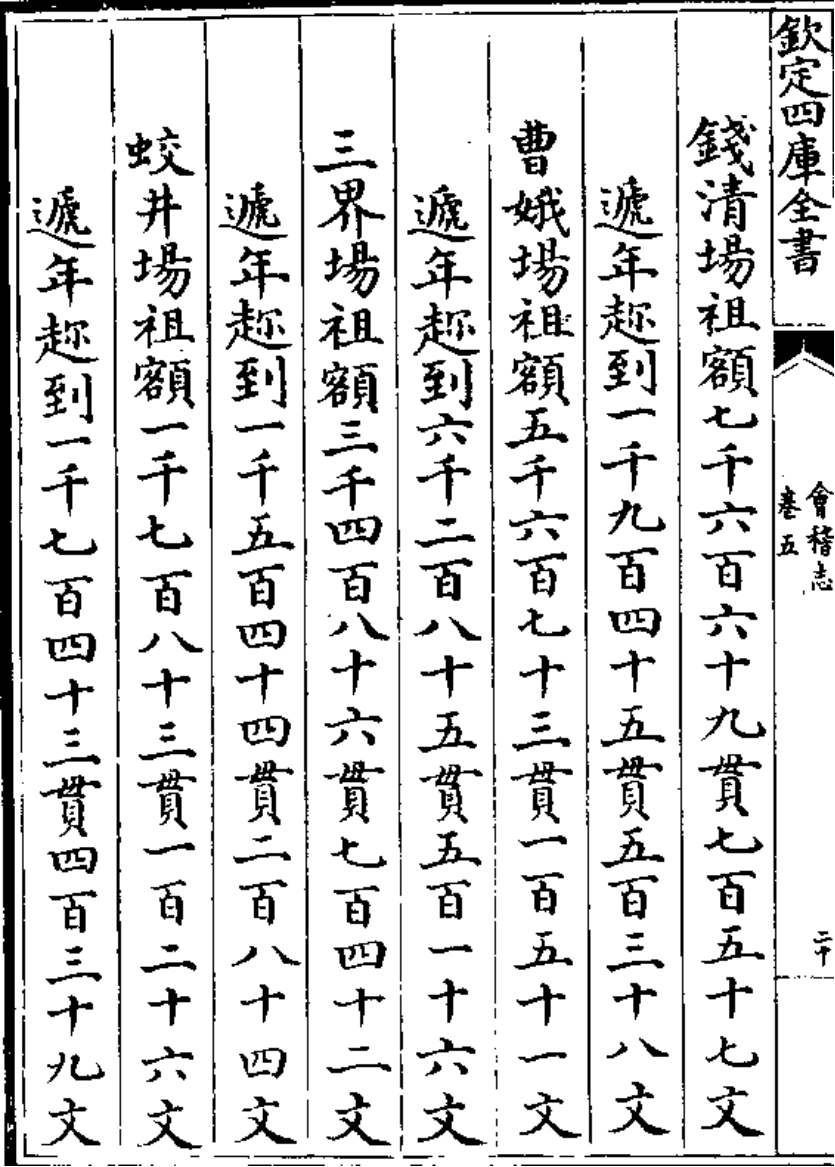 欽定四庫全書
會稽志
卷五
二十
錢清場祖額七千六百六十九貫七百五十七文
遞年趂到一千九百四十五貫五百三十八文
曹娥場祖額五千六百七十三貫一百五十一文
遞年趂到六千二百八十五貫五百一十六文
三界場祖額三千四百八十六貫七百四十二文
遞年趂到一千五百四十四貫二百八十四文
蛟井場祖額一千七百八十三貫一百二十六文
遞年趂到一千七百四十三貫四百三十九文